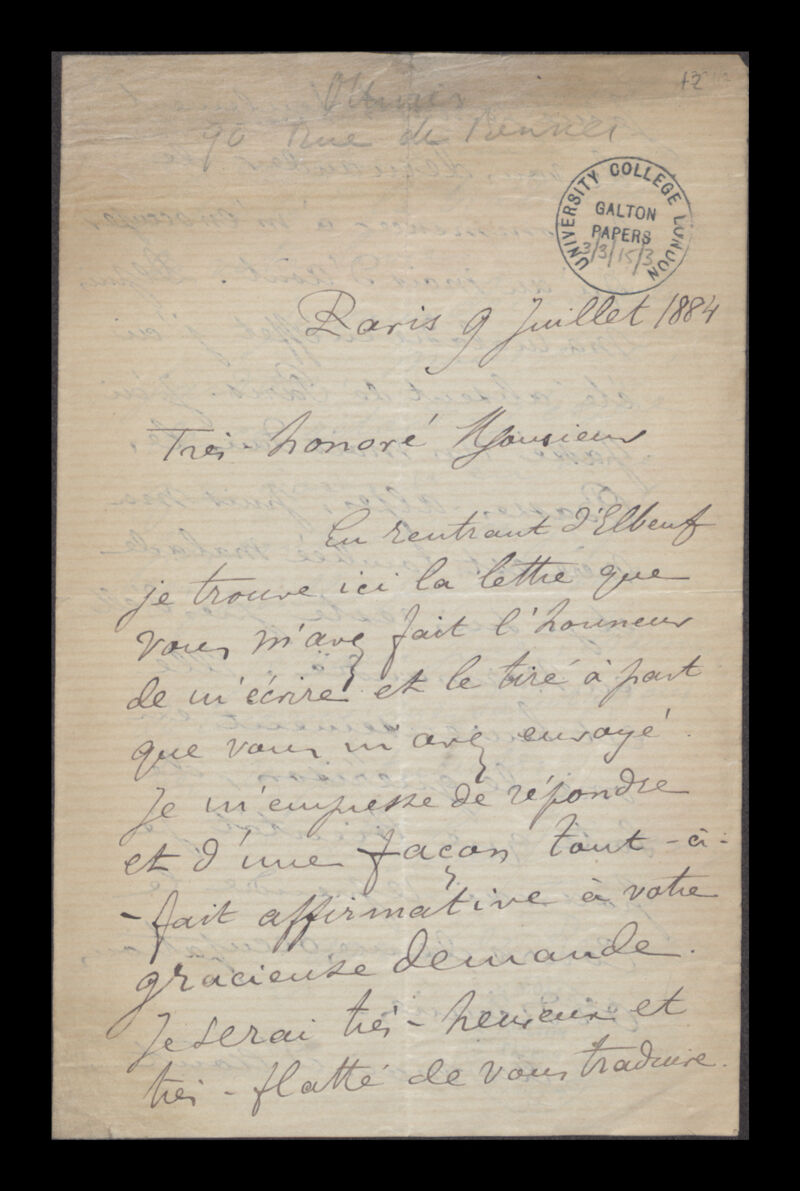 90 rue de Rennes
UNIVERSITY COLLEGE LONDON
GALTON
PAPERS
3/3/15/3
Paris 9 Juillet 1884
Très honoré Monsieur
En rentrant d'Elbeuf
je trouve ici la lettre que
vous m'avez fait l'honneur
de m'écrire et le tiré à part
que vous m'avez envoyé.
Je m'empresse de répondre
et d'une façon tout-à-
-fait affirmative à votre
gracieuse demande.
Je serai très-heureux et
très-flatté de vous traduire.